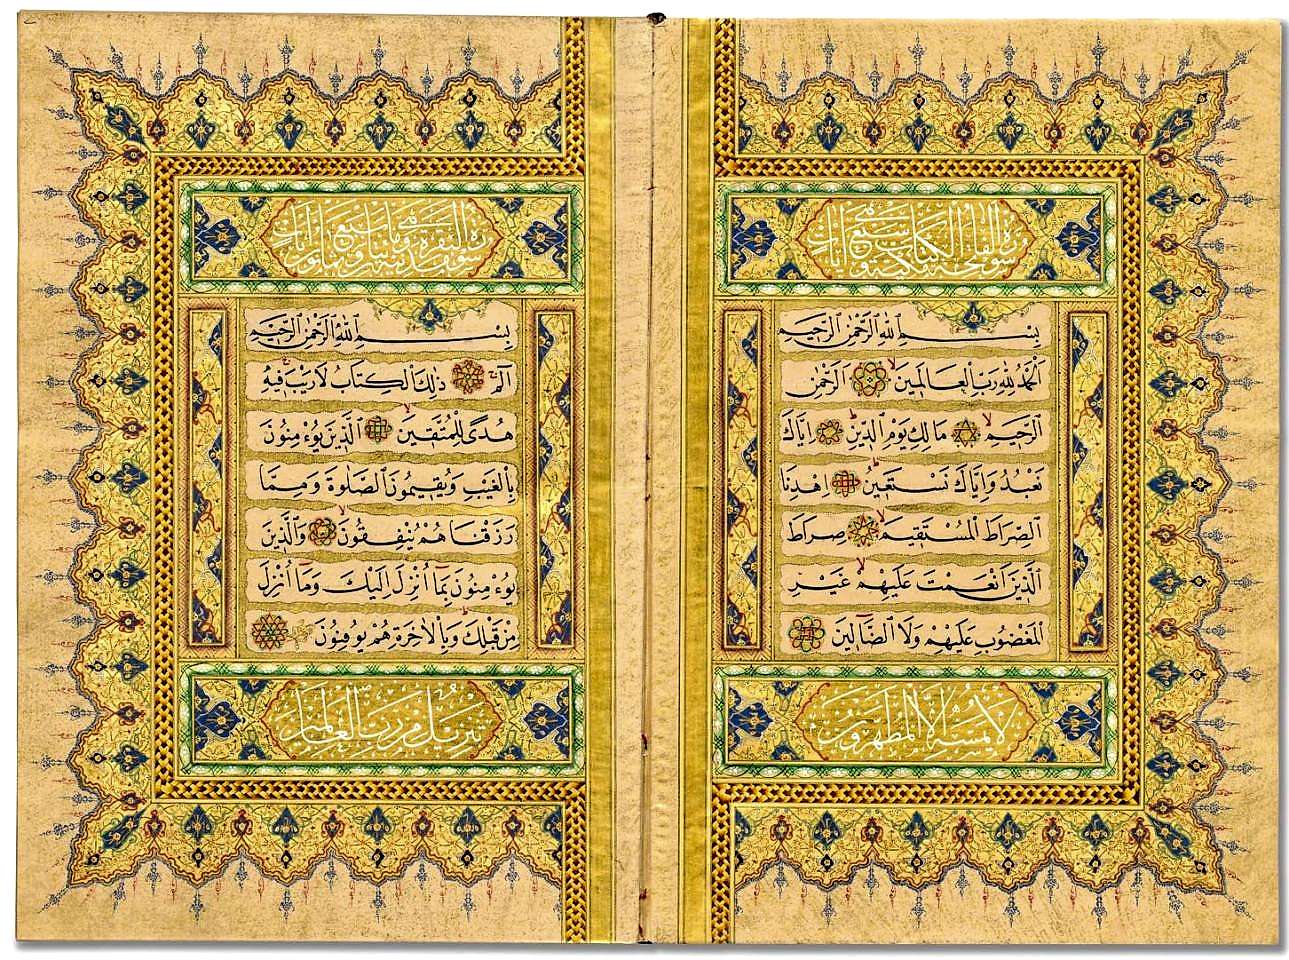 سورة الفاتحة الكتاب مكية وهي سبع آيات
بِسْمِ اللهِ الرَّحْمٰنِ الرَّحِيمِ
اَلْحَمْدُ لِلّٰهِ رَبِّ الْعَالَمِينَ الرَّحْمٰنِ
الرَّحِيمِ مَالِكِ يَوْمِ الدِّينِ اِيَّاكَ
نَعْبُدُ وَاِيَّاكَ نَسْتَعِينُ اِهْدِنَا
الصِّرَاطَ الْمُسْتَقِيمَ صِرَاطَ
الَّذِينَ اَنْعَمْتَ عَلَيْهِمْ غَيْرِ
الْمَغْضُوبِ عَلَيْهِمْ وَلَا الضَّالِّينَ
لا يمسه الا المطهرون
سورة البقرة مدنية وهي
بِسْمِ اللهِ الرَّحْمٰنِ الرَّحِيمِ
الٓمٓ ذٰلِكَ الْكِتَابُ لَا رَيْبَ فِيهِ
هُدًى لِلْمُتَّقِينَ الَّذِينَ يُؤْمِنُونَ
بِالْغَيْبِ وَيُقِيمُونَ الصَّلٰوةَ وَمِمَّا
رَزَقْنَاهُمْ يُنْفِقُونَ وَالَّذِينَ
يُؤْمِنُونَ بِمَا اُنْزِلَ اِلَيْكَ وَمَا اُنْزِلَ
مِنْ قَبْلِكَ وَبِالْاٰخِرَةِ هُمْ يُوقِنُونَ
تنزيل من رب العالمين